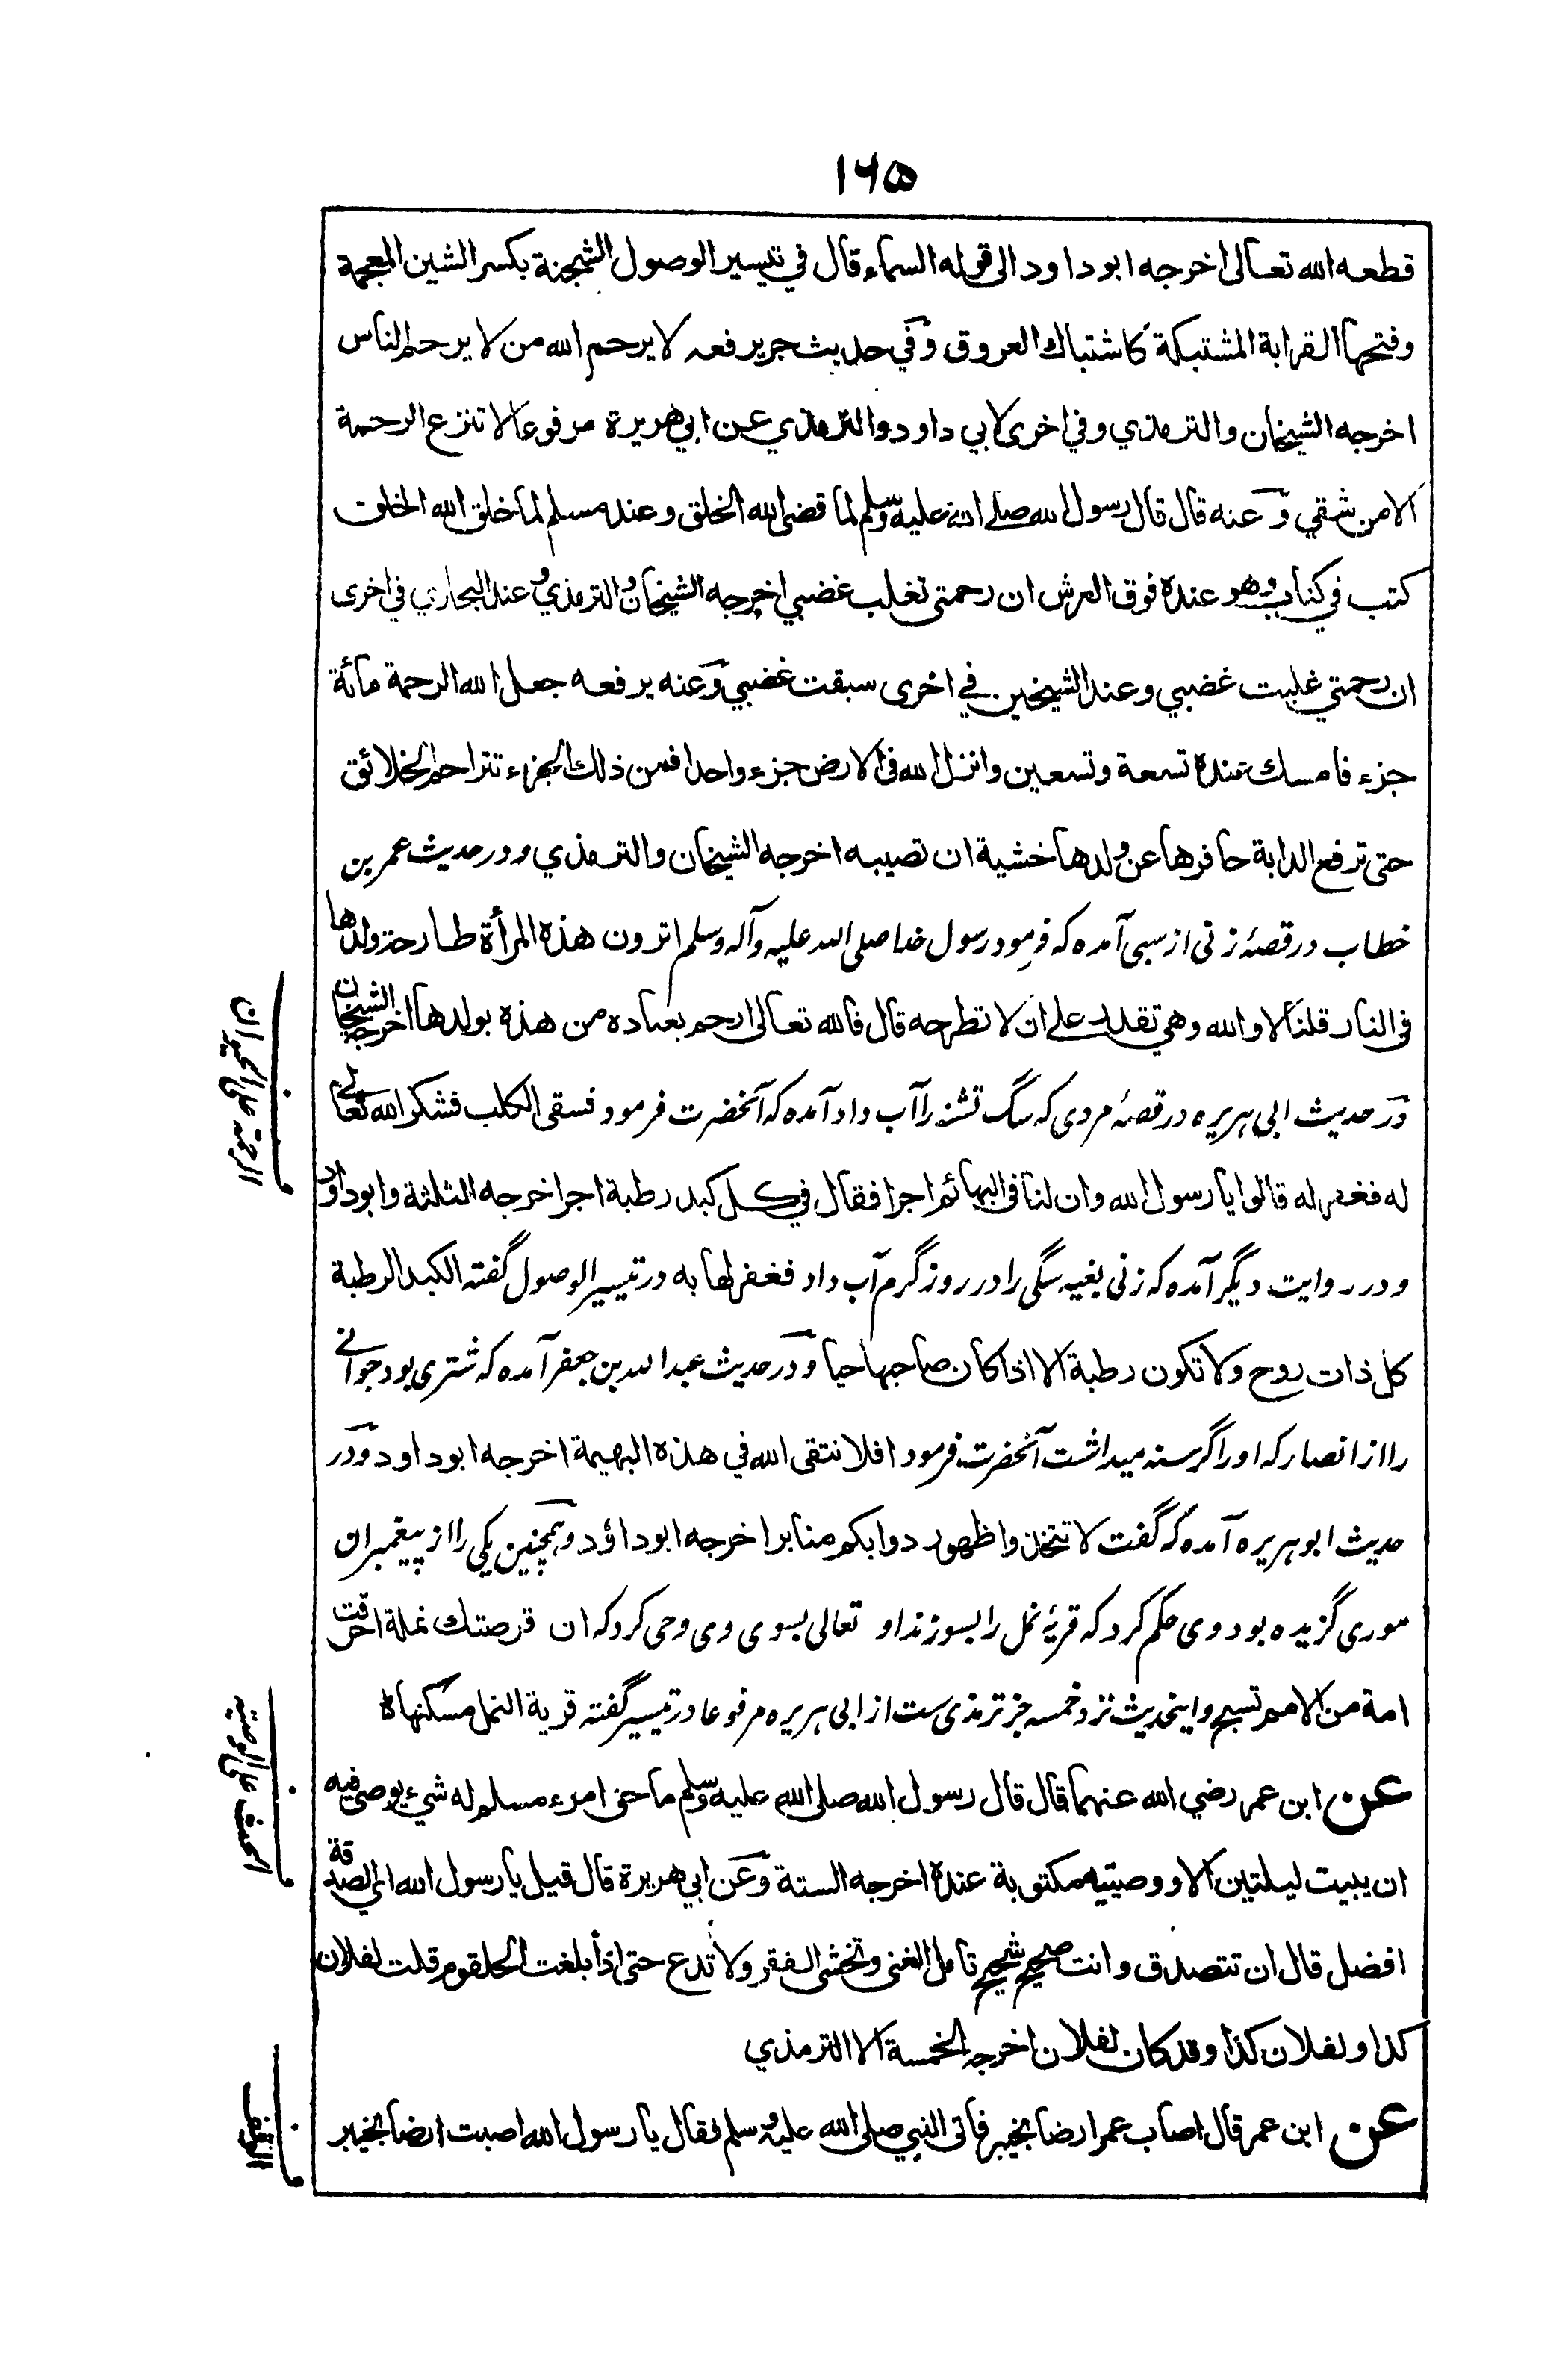 ۱۶۵
قطعه الله تعالى اخرجه ابو داود الى قوله السماء قال في تيسير الوصول الشجنة بكسر الشين المعجمة
وفتحها القرابة المشتبكة كاشتباك العروق وفي حديث جرير فعه لا يرحم الله من لا يرحم الناس
اخرجه الشيخان والترمذي وفي اخرى لابي داود والترمذي عن ابي هريرة مرفوعا لا تنزع الرحمة
الا من شقي وعنه قال قال رسول الله صلى الله عليه وسلم لما قضى الله الخلق وعند مسلم لما خلق الله الخلق
كتب في كتاب وهو عنده فوق العرش ان رحمتي تغلب غضبي اخرجه الشيخان والترمذي وعند البخاري في اخرى
ان رحمتي غلبت غضبي وعند الشيخين في اخرى سبقت غضبي وعنه يرفعه جعل الله الرحمة مائة
جزء فامسك عنده تسعة وتسعين وانزل الله في الارض جزء واحدا فمن ذلك الجزء تتراحم الخلائق
حتى ترفع الدابة حافرها عن ولدها خشية ان تصيبه اخرجه الشيخان والترمذي ودر حدیث عمر بن
خطاب در قصۂ زنی از سبی آمده که فرمود رسول خدا صلی الله علیه وآله وسلم اترون هذه المرأة طارحة ولدها
في النار قلنا لا والله وهي تقدر على ان لا تطرحه قال فالله تعالى ارحم بعباده من هذه بولدها اخرجه الشيخان
ودر حدیث ابی هریره در قصۂ مردی که سگ تشنه را آب داد آمده که آنحضرت فرمود فسقى الكلب فشكر الله تعالى
له فغفر له قالوا يا رسول الله وان لنا في البهائم اجرا فقال في كل كبد رطبة اجر اخرجه الثلثة وابو داود
ودر روایت دیگر آمده که زنی بغیه سگی را در روز گرم آب داد فغفر لها به در تیسیر الوصول گفته الكبد الرطبة
كل ذات روح ولا تكون رطبة الا اذا كان صاحبها حيا ودر حدیث عبد الله بن جعفر آمده که شتری بود جوانے
را از انصار که او را گرسنه میداشت آنحضرت فرمود افلا تتقى الله في هذه البهيمة اخرجه ابو داود ودر
حدیث ابو هریره آمده که گفت لا تتخذوا ظهور دوابكم منابر اخرجه ابو داؤد وهمچنین یکی را از پیغمبران
موری گزیده بود وی حکم کرد که قریۂ نمل را بسوزند او تعالی بسوی وی وحی کرد که ان قرصتك نملة احرقت
امة من الامم تسبح واینحدیث نزد خمسه جز ترمذی ست از ابی هریره مرفوعا در تیسیر گفته قرية النمل مسكنها
عن ابن عمر رضي الله عنهما قال قال رسول الله صلى الله عليه وسلم ما حق امرء مسلم له شيء يوصي فيه
ان يبيت ليلتين الا ووصيته مكتوبة عنده اخرجه الستة وعن ابي هريرة قال قيل يا رسول الله اي الصدقة
افضل قال ان تتصدق وانت صحيح شحيح تامل الغنى وتخشى الفقر ولا تدع حتى اذا بلغت الحلقوم قلت لفلان
كذا ولفلان كذا وقد كان لفلان اخرجه الخمسة الا الترمذي
عن ابن عمر قال اصاب عمر ارضا بخيبر فاتى النبي صلى الله عليه وسلم فقال يا رسول الله اصبت ارضا بخيبر
الرحمة على الحيوان
الحث على الوصية
الوقف